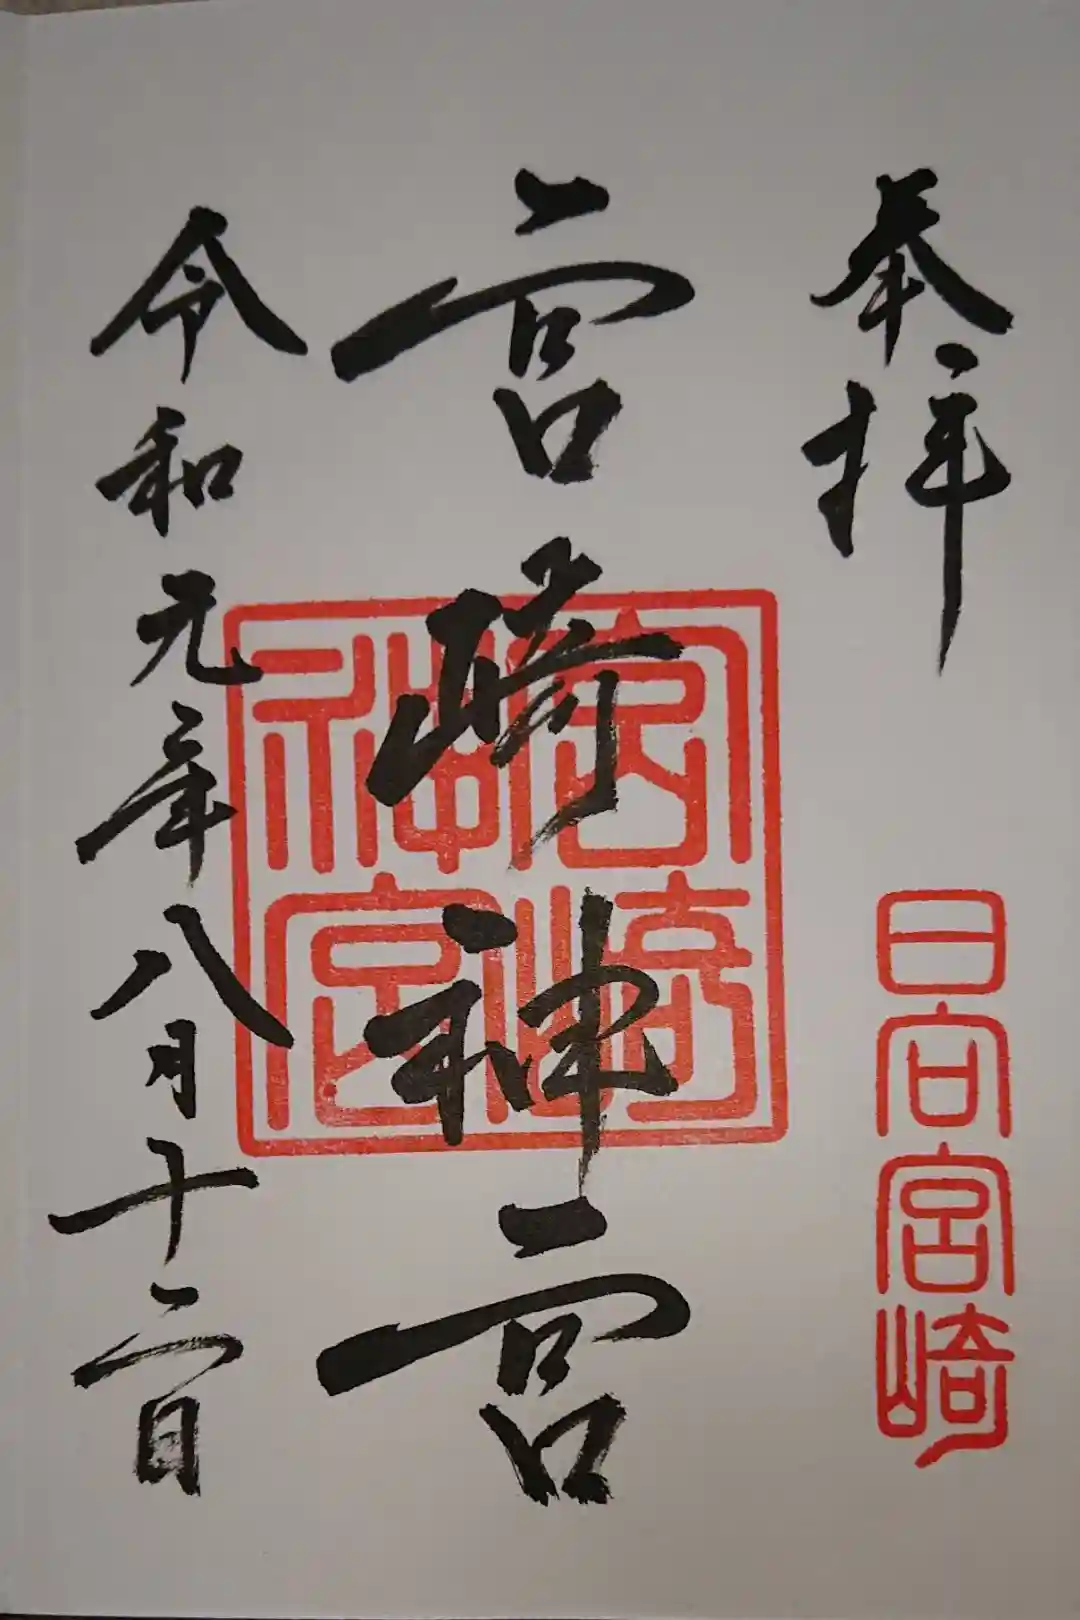 奉拝
日向宮崎
宮崎神宮
宮崎神宮
令和元年八月十二日